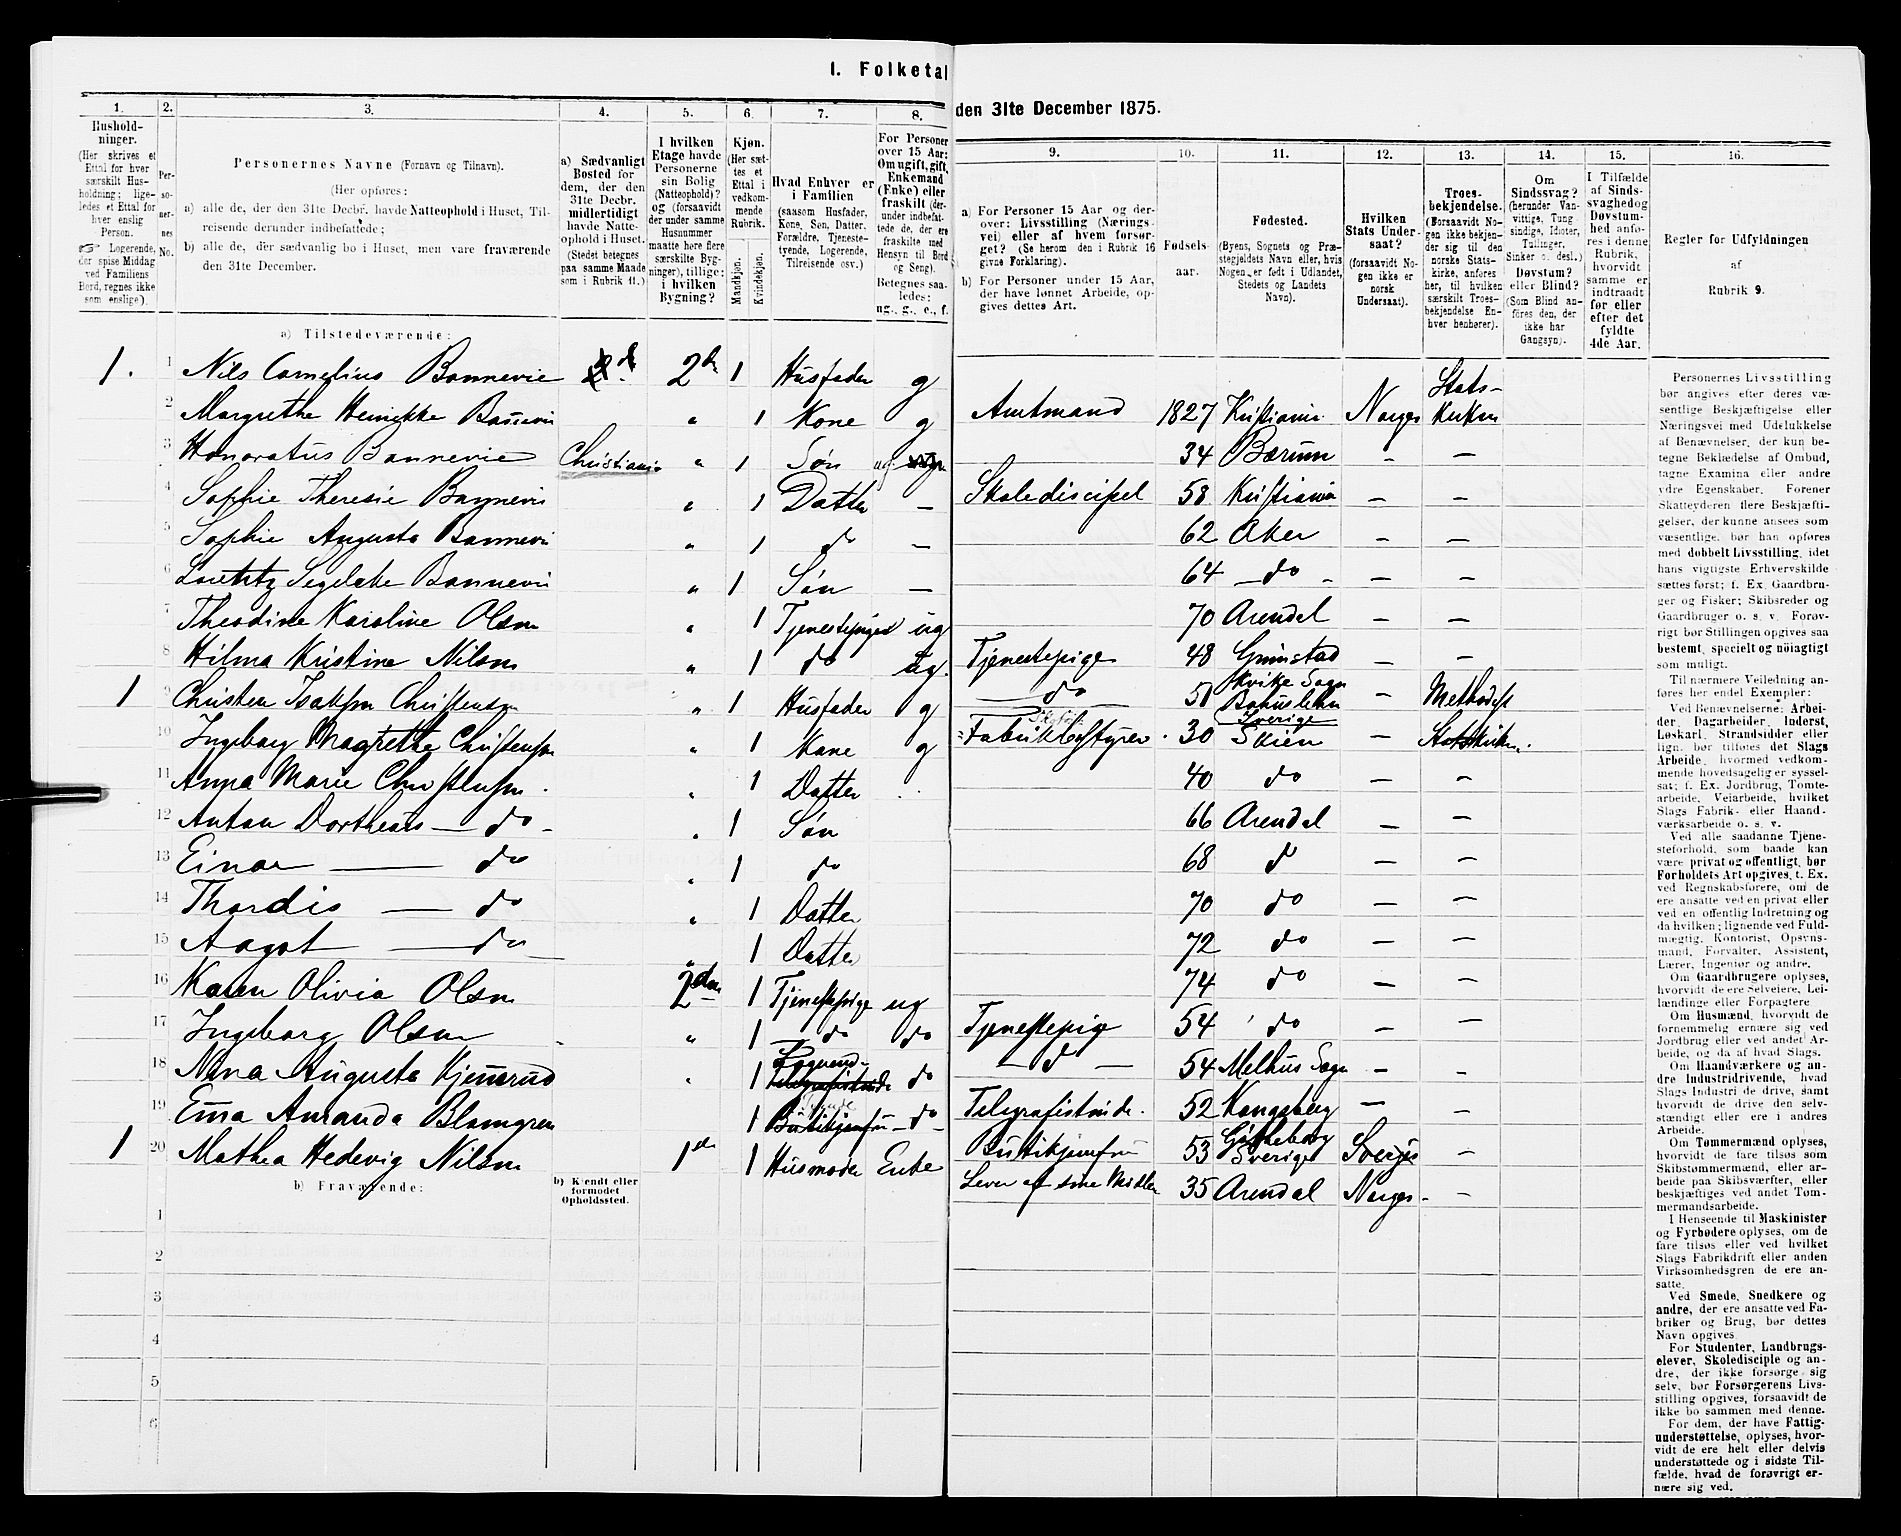 I. Folketal
den 31te December 1875.
1. 2. 3. 4. 5. 6. 7. 8. 9. 10. 11. 12. 13. 14. 15. 16.
Hushold-
ninger.
(Her skrives et
Ettal for hver
særskilt Hus-
holdning; lige-
ledes et Ettal for
hver enslig
Person.
☞ Logerende,
der spise Middag
ved Familiens
Bord, regnes ikke
som enslige).
Per-
so-
ner-
nes
No.
Personernes Navne (Fornavn og Tilnavn).
(Her opføres:
a) alle de, der den 31te Decbr. havde Natteophold i Huset, Til-
reisende derunder indbefattede;
b) alle de, der sædvanlig bo i Huset, men vare fraværende
den 31te December.
a) Sædvanligt
Bosted for
dem, der den
31te Decbr.
midlertidigt
havde Natte-
ophold i Huset.
(Stedet betegnes
paa samme Maade
som i Rubrik 11.)
I hvilken
Etage havde
Personerne
sin Bolig
(Natteophold)?
og (forsaavidt
der under samme
Husnummer
maatte høre flere
særskilte Byg-
ninger), tillige:
i hvilken
Bygning?
Kjøn.
(Her sæt-
tes et
Ettal i
vedkom-
mende
Rubrik.
Mandkjøn.
Kvindekjøn.
Hvad Enhver er
i Familien
(saasom Husfader,
Kone, Søn, Datter,
Forældre, Tjeneste-
tyende, Logerende,
Tilreisende osv.)
For Personer
over 15 Aar:
Om ugift, gift,
Enkemand
(Enke) eller
fraskilt (der-
under indbefat-
tede de, der ere
fraskilte med
Hensyn til Bord
og Seng).
Betegnes saa-
ledes:
ug., g., e., f.
a) For Personer 15 Aar og der-
over: Livsstilling (Nærings-
vei) eller af hvem forsør-
get? (Se herom den i Rubrik 16
givne Forklaring).
b) For Personer under 15 Aar,
der have lønnet Arbeide, op-
gives dettes Art.
Fødsels-
aar.
Fødested.
(Byens, Sognets og Præ-
stegjeldets Navn eller, hvis
Nogen er født i Udlandet,
Stedets og Landets
Navn).
Hvilken
Stats Under-
saat?
(forsaavidt No-
gen ikke er
norsk
Undersaat).
Troes-
bekjendelse.
(Forsaavidt No-
gen ikke bekjen-
der sig til den
norske Stats-
kirke, anføres
her, til hvilken
særskilt Troes-
bekjendelse En-
hver henhører).
Om
Sindssvag?
(herunder Van-
vittige, Tung-
sindige, Idioter,
Tullinger,
Sinker o. desl.)
Døvstum?
eller Blind?
(Som Blind an-
føres den, der
ikke har
Gangsyn).
I Tilfælde
af Sinds-
svaghed og
Døvstum-
hed anfø-
res i denne
Rubrik,
hvorvidt
samme er
indtraadt
før eller
efter det
fyldte
4de Aar.
Regler for Udfyldningen
af
Rubrik 9.
a) Tilstedeværende:
1. 1 Nils Cornelius Bonnevie 2d 2de 1 Husfader g Amtmand 1827 Kristiania Norges Stats-kirken
2 Margrethe Henrikke Bonnevie " 1 Kone g 34 Bærum — —
3 Honoratus Bonnevie Christiania " 1 Søn ug Skoledisicipel 58 Kristiania — —
4 Sophie Theresie Bonnevie " 1 Datter — 62 Aker — —
5 Sophie Augusta Bonnevie " 1 do — 64 — do — — —
6 Segelcke Bonnevie " 1 Søn — 70 Arendal — —
7 Theodine Karoline Olsen " 1 Tjenestepige ug Tjenestepige 48 Grimstad — —
8 Hilma Kristine Nilsen " 1 do ug. — do — 51 Sogn Bahuslehn Sverige — Methodist
1 9 Christen Isaksen Christensen " 1 Husfader g Fabrikbestyrer. 30 Skien — Statskirken.
10 Ingeborg Magrethe Christensen " 1 Kone g 40 do — —
11 Anna Marie Christensen " 1 Datter 66 Arendal — —
12 Anton Dortheus — do — " 1 Søn 68 do — —
13 Einar — do " 1 do 70 do — —
14 Thordis — do " 1 Datter 72 do — —
15 Aagot — do " 1 Datter 74 do — —
16 Karen Olivia Olsen 2den 1 Tjenestepige ug Tjenestepige 54 do — —
17 Ingeborg Olsen " 1 — do do — do — 54 Melhus Sogn — —
18 Nina Augusta Kjenerud " 1 Logerende Telegrafistinde do Telegrafistinde. 52 Kongsberg — —
19 Ema Amanda Blomgren 1 Butikjomfru — do — Butikjomfru 53 Gøtheborg Sverige Sverige —
1 20 Mathea Hedevig Nilsen 1ste 1 Husmoder Enke Lever af sine Midler 35 Arendal Norges —
b) Fraværende:
b) Kjendt eller
formodet
Opholdssted.
1
2
3
4
5
6
Personernes Livsstilling
bør angives efter deres væ-
sentlige Beskjæftigelse eller
Næringsvei med Udelukkelse
af Benævnelser, der kun be-
tegne Beklædelse af Ombud,
tagne Examina eller andre
ydre Egenskaber. Forener
Skatteyderen flere Beskjæfti-
gelser, der kunne ansees som
væsentlige, bør han opføres
med dobbelt Livsstilling, idet
hans vigtigste Erhvervskilde
sættes først; f. Ex. Gaardbru-
ger og Fisker; Skibsreder og
Gaardbruger o. s. v. Forøv-
rigt bør Stillingen opgives saa
bestemt, specielt og nøiagtigt
som muligt.
Til nærmere Veiledning an-
føres her endel Exempler:
Ved Benævnelserne: Arbei-
der, Dagarbeider, Inderst,
Løskarl, Strandsidder eller
lign. bør tilføres det Slags
Arbeide, hvormed vedkom-
mende hovedsagelig er syssel-
sat; f. Ex. Jordbrug, Tomte-
arbeide, Veiarbeide, hvilket
Slags Fabrik- eller Haand-
værksarbeide o. s. v.
Ved alle saadanne Tjene-
steforhold, som baade kan
være privat og offentligt, bør
Forholdets Art opgives, t. Ex.
ved Regnskabsførere, om de
ere ansatte ved en privat eller
ved en offentlig Indretning og
da hvilken; lignende ved Fuld-
mægtig, Kontorist, Opsyns-
mand, Forvalter, Assistent,
Lærer, Ingeniør og andre.
Om Gaardbrugere oplyses,
hvorvidt de ere Selveiere, Lei-
lændinge eller Forpagtere
Om Husmænd, hvorvidt de
fornemmelig ernære sig ved
Jordbrug eller ved andet Ar-
beide, og da af hvad Slags.
Om Haandværkere og an-
dre Industridrivende, hvad
Slags Industri de drive, samt
hvorvidt de drive den selv-
stændigt eller ere i andres
Arbeide.
Om Tømmermænd oplyses,
hvorvidt de fare tilsøs som
Skibstømmermænd, eller ar-
beide paa Skibsværfter, eller
beskjæftiges ved andet Tøm-
mermandsarbeide.
I Henseende til Maskinister
og Fyrbødere oplyses, om de
fare tilsøs eller ved hvilket
Slags Fabrikdrift eller anden
Virksomhedsgren de ere an-
satte.
Ved Smede, Snedkere og
andre, der ere ansatte ved Fa-
briker og Brug, bør dettes
Navn opgives
For Studenter, Landbrugs-
elever, Skoledisciple og an-
dre, der ikke forsørge sig
selv, bør Forsørgerens Livs-
stilling opgives, forsaavidt de
ikke bo sammen med denne.
For dem, der have Fattig-
understøttelse, oplyses, hvor-
vidt de ere helt eller delvis
understøttede og i sidste Til-
fælde, hvad de forøvrigt er-
nære sig ved.